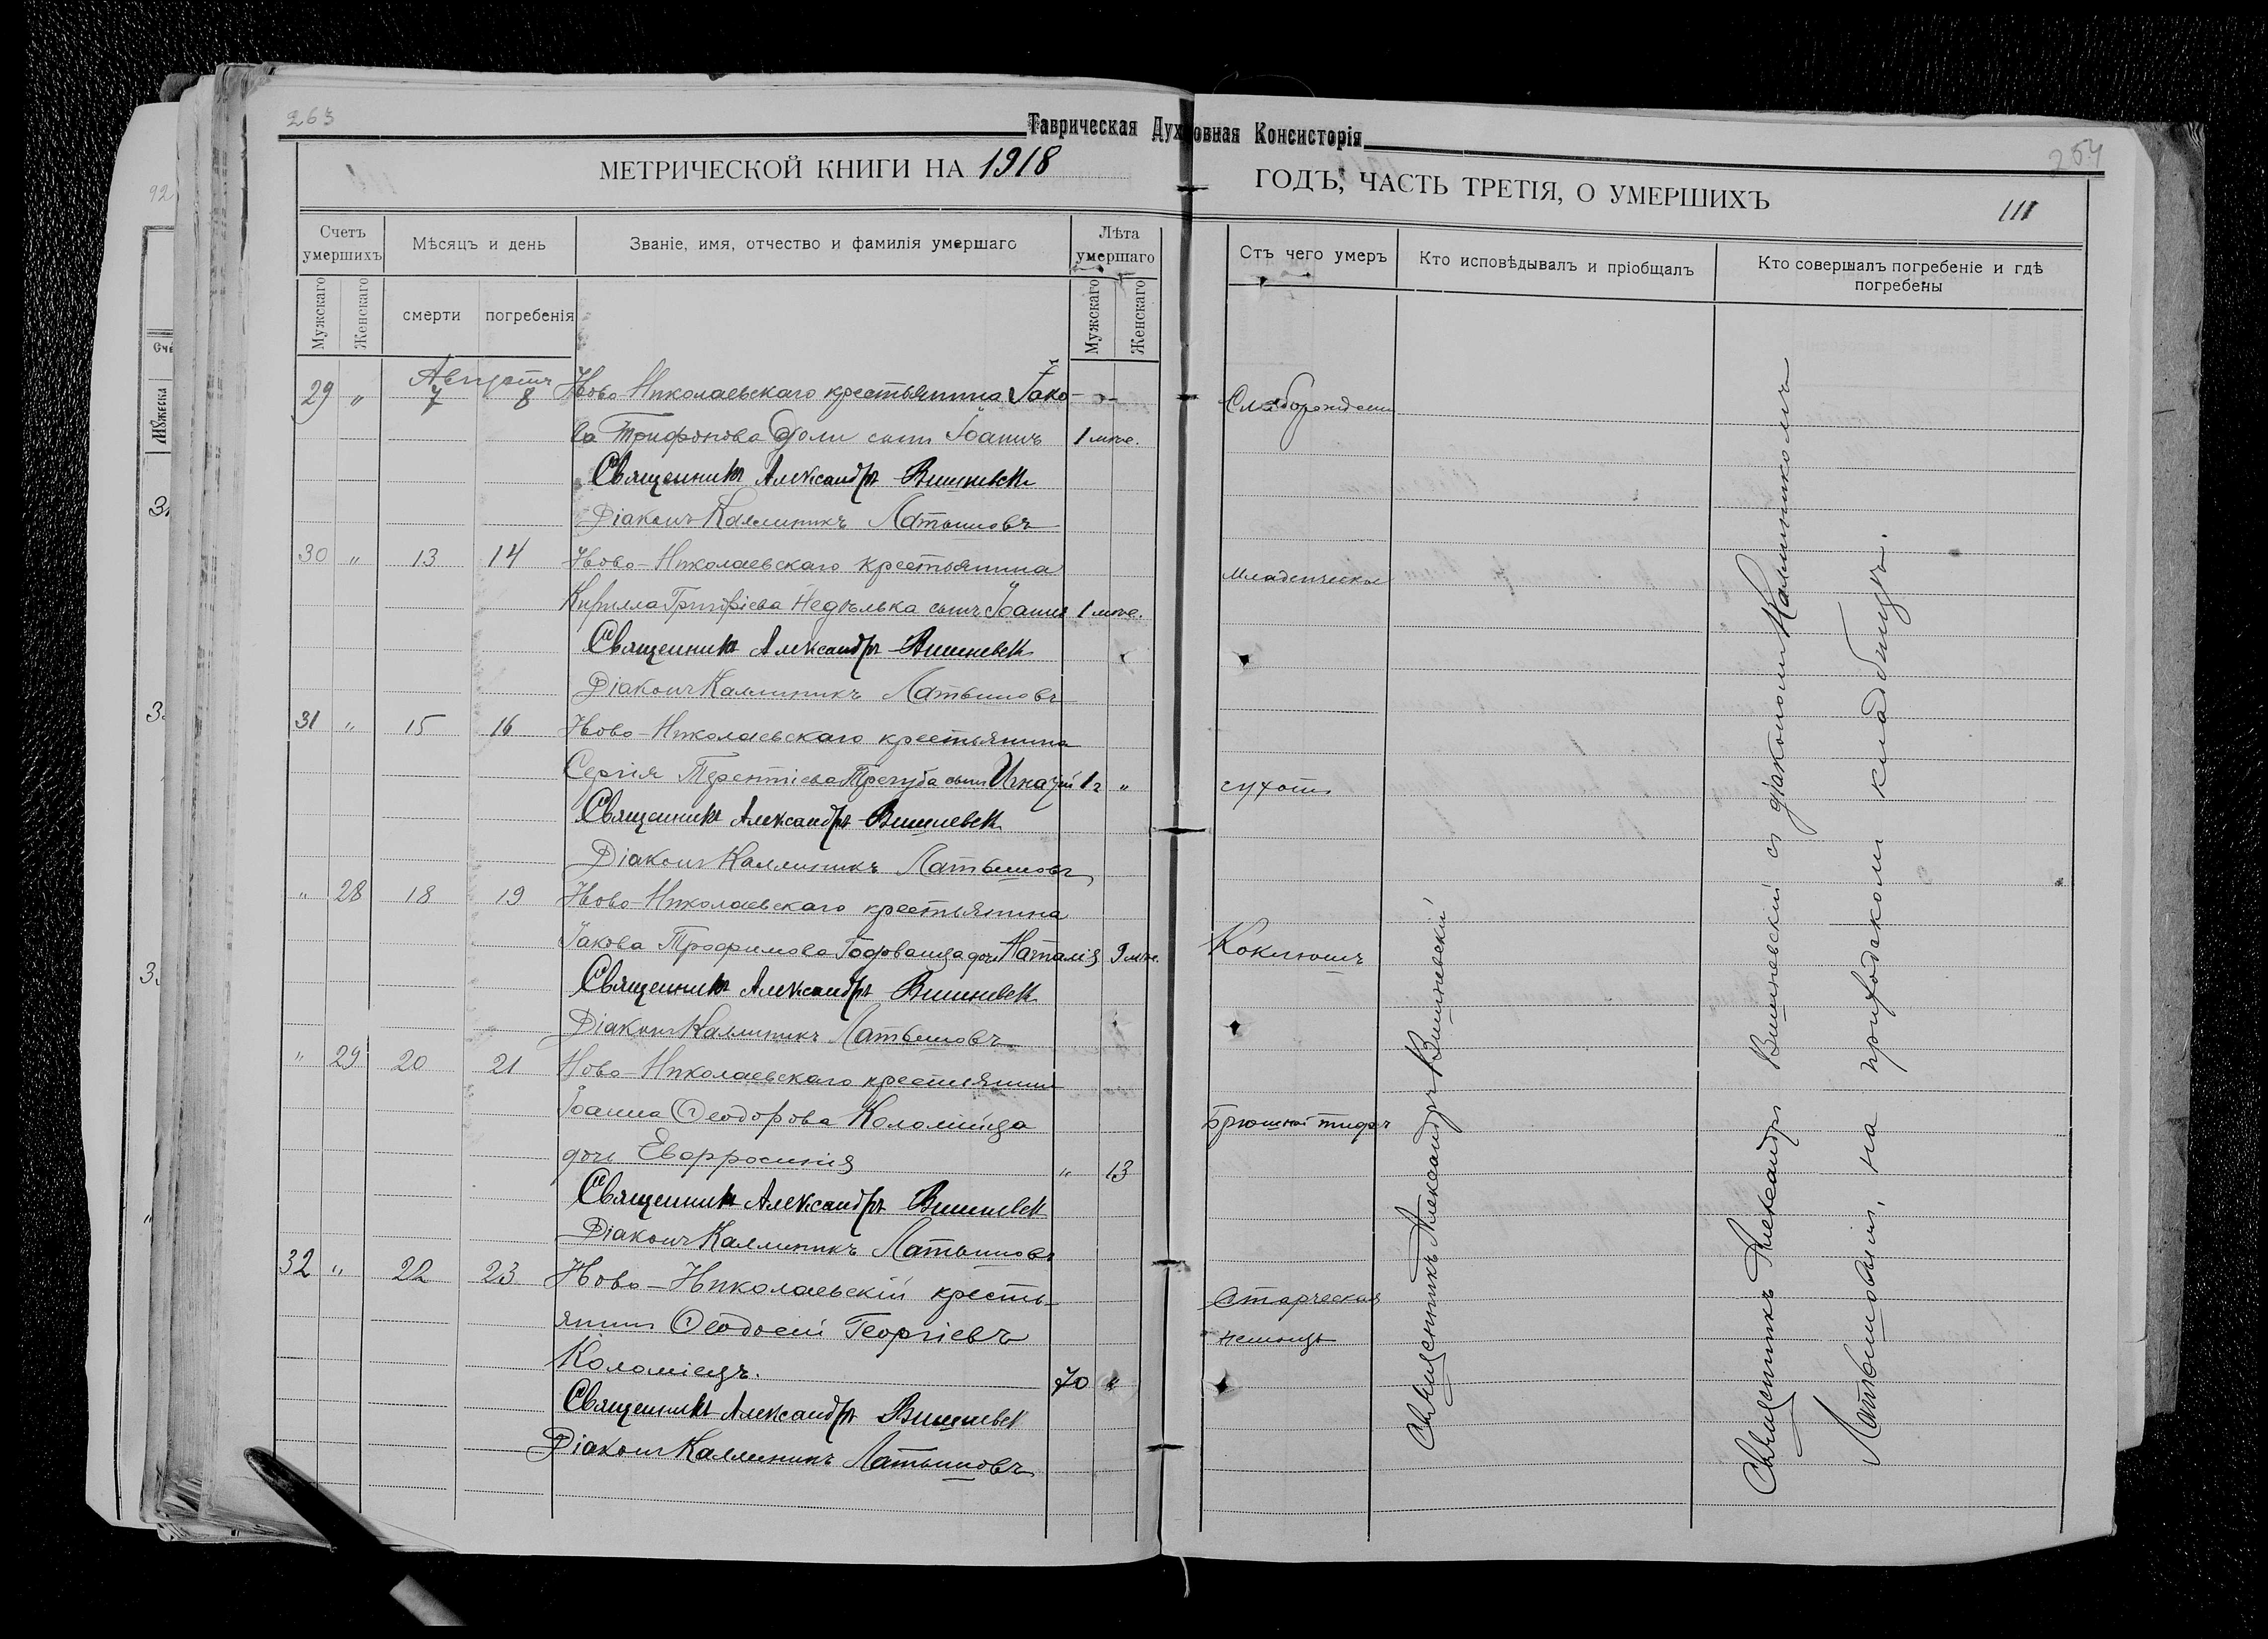 263
Таврическая Духовная Консисторія
254
МЕТРИЧЕСКОЙ КНИГИ НА 1918
ГОДЪ, ЧАСТЬ ТРЕТІЯ, О УМЕРШИХЪ
111
Счетъ умершихъ
Мѣсяцъ и день
Званіе, имя, отчество и фамилія умершаго
Лѣта умершаго
Отъ чего умеръ
Кто исповѣдывалъ и пріобщалъ
Кто совершалъ погребеніе и гдѣ погребены
Мужскаго
Женскаго
смерти
погребенія
Мужскаго
Женскаго
Августъ
29 " 7 8 Ново-Николаевскаго крестьянина Іако-
ва Трифонова сынъ Іоаннъ 1 мѣс.
Священникъ Александръ Вишневск
Діаконъ Каллиникъ Латышовъ
30 " 13 14 Ново-Николаевскаго крестьянина Младенческая
Кирилла Григоріева Недѣлька сынъ Іоаннъ 1 мѣс.
Священникъ Александръ Вишневск
Діаконъ Каллиникъ Латышовъ
31 " 15 16 Ново-Николаевскаго крестьянина
Сергія Терентіева Трегуба сынъ 1 г " сухоты
Священникъ Александръ Вишневск
Діаконъ Каллиникъ Латышовъ
" 28 18 19 Ново-Николаевскаго крестьянина
Іакова Трофимова дочь Наталія 9 мѣс. Коклюшъ
Священникъ Александръ Вишневск
Діаконъ Каллиникъ Латышовъ
" 29 20 21 Ново-Николаевскаго крестьянина
Іоанна Ѳеодорова Коломійца Брюшной тифъ
дочь Евфросинія " 13
Священникъ Александръ Вишневск
Діаконъ Каллиникъ Латышовъ
32 " 22 23 Ново-Николаевскій кресть- Старческая
янинъ Ѳеодосій Георгіевъ немощь
Коломіецъ. 70 "
Священникъ Александръ Вишневск
Діаконъ Каллиникъ Латышовъ
Священникъ Александръ Вишневскій
Священникъ Александръ Вишневскій съ діакономъ Каллиникомъ
Латышовымъ, на приходскомъ кладбищѣ.